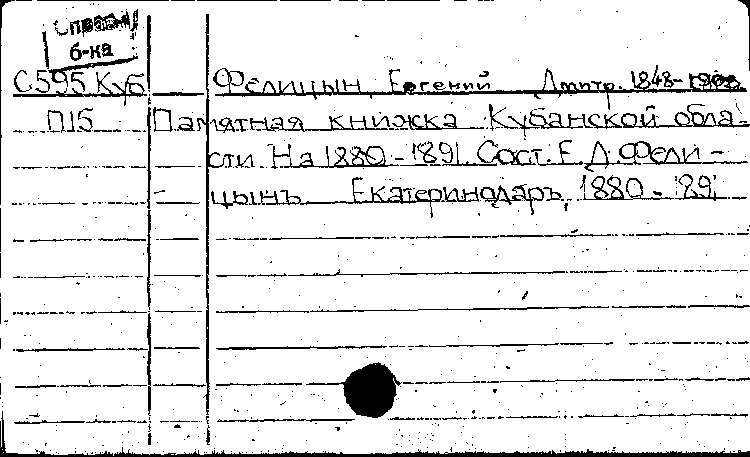 Справ.
б-ка
С595.Куб Фелицын, Евгений Дмитр. 1848-
П15 Памятная книжка Кубанской обла-
сти. На 1880-1891. Сост. Е.Д. Фели-
цынъ. Екатеринодаръ, 1880-